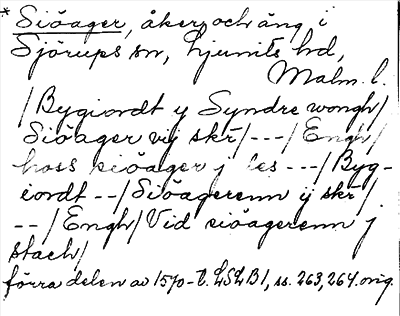 * Siöager, åker och äng i
Sjörups sn, Ljunits hd,
Malm. l.
/Bygiordt y Syndre wongh/
Siöager vij skr/---/Engh/
hoss siöager j les ---/Byg-
iordt --/Siöagerenn ij skr/
--/Engh/Vid siöagerenn j
stach/
förra delen av 1570-t. LSLB1, ss. 263, 264. orig.